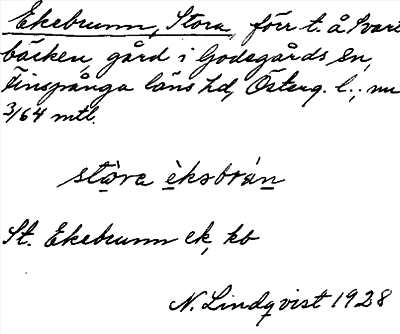 Ekebrunn, Stora, förr t. å Svart
bäcken, gård i Godegårds sn,
Finspånga läns hd, Österg. l., nu
3/64 mtl.
stòra èksbrún
St. Ekebrunn ek, kb
N. Lindqvist 1928